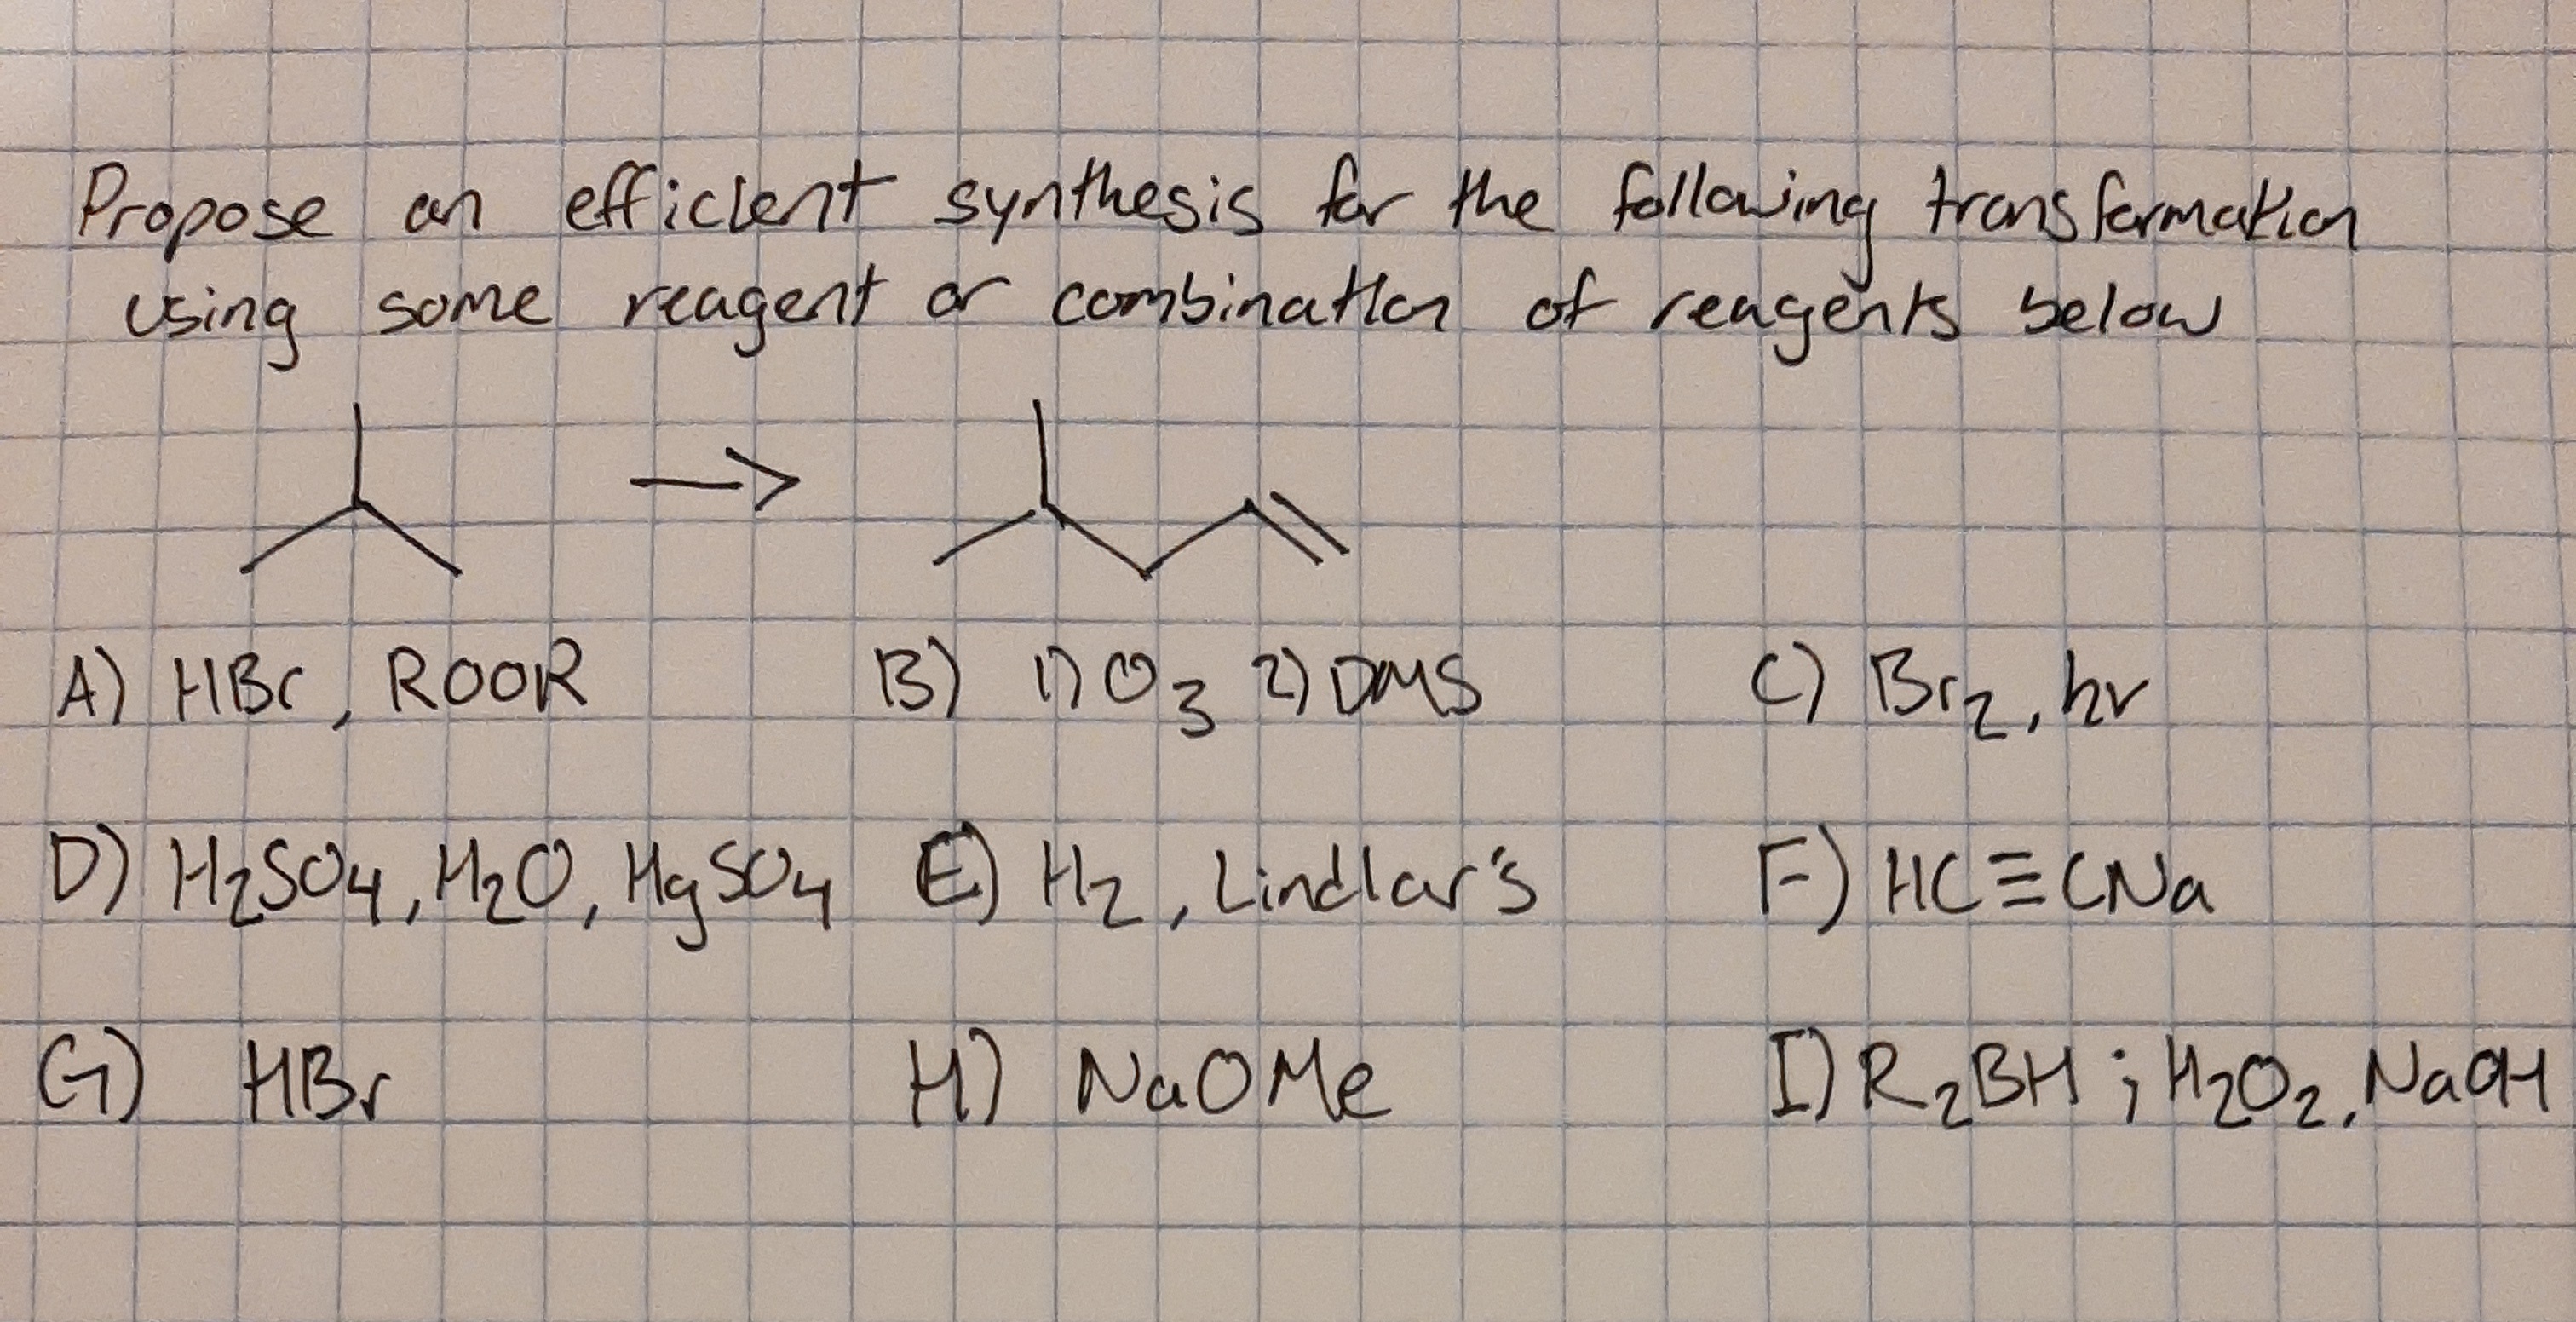 Propose an efficient synthesis for the following transformation
using some reagent or combination of reagents below
A) HBr, ROOR B) 1) O3 2) DMS C) Br2, hv
D) H2SO4, H2O, HgSO4 E) H2, Lindlar's F) HC≡CNa
G) HBr H) NaOMe I) R2BH; H2O2, NaOH